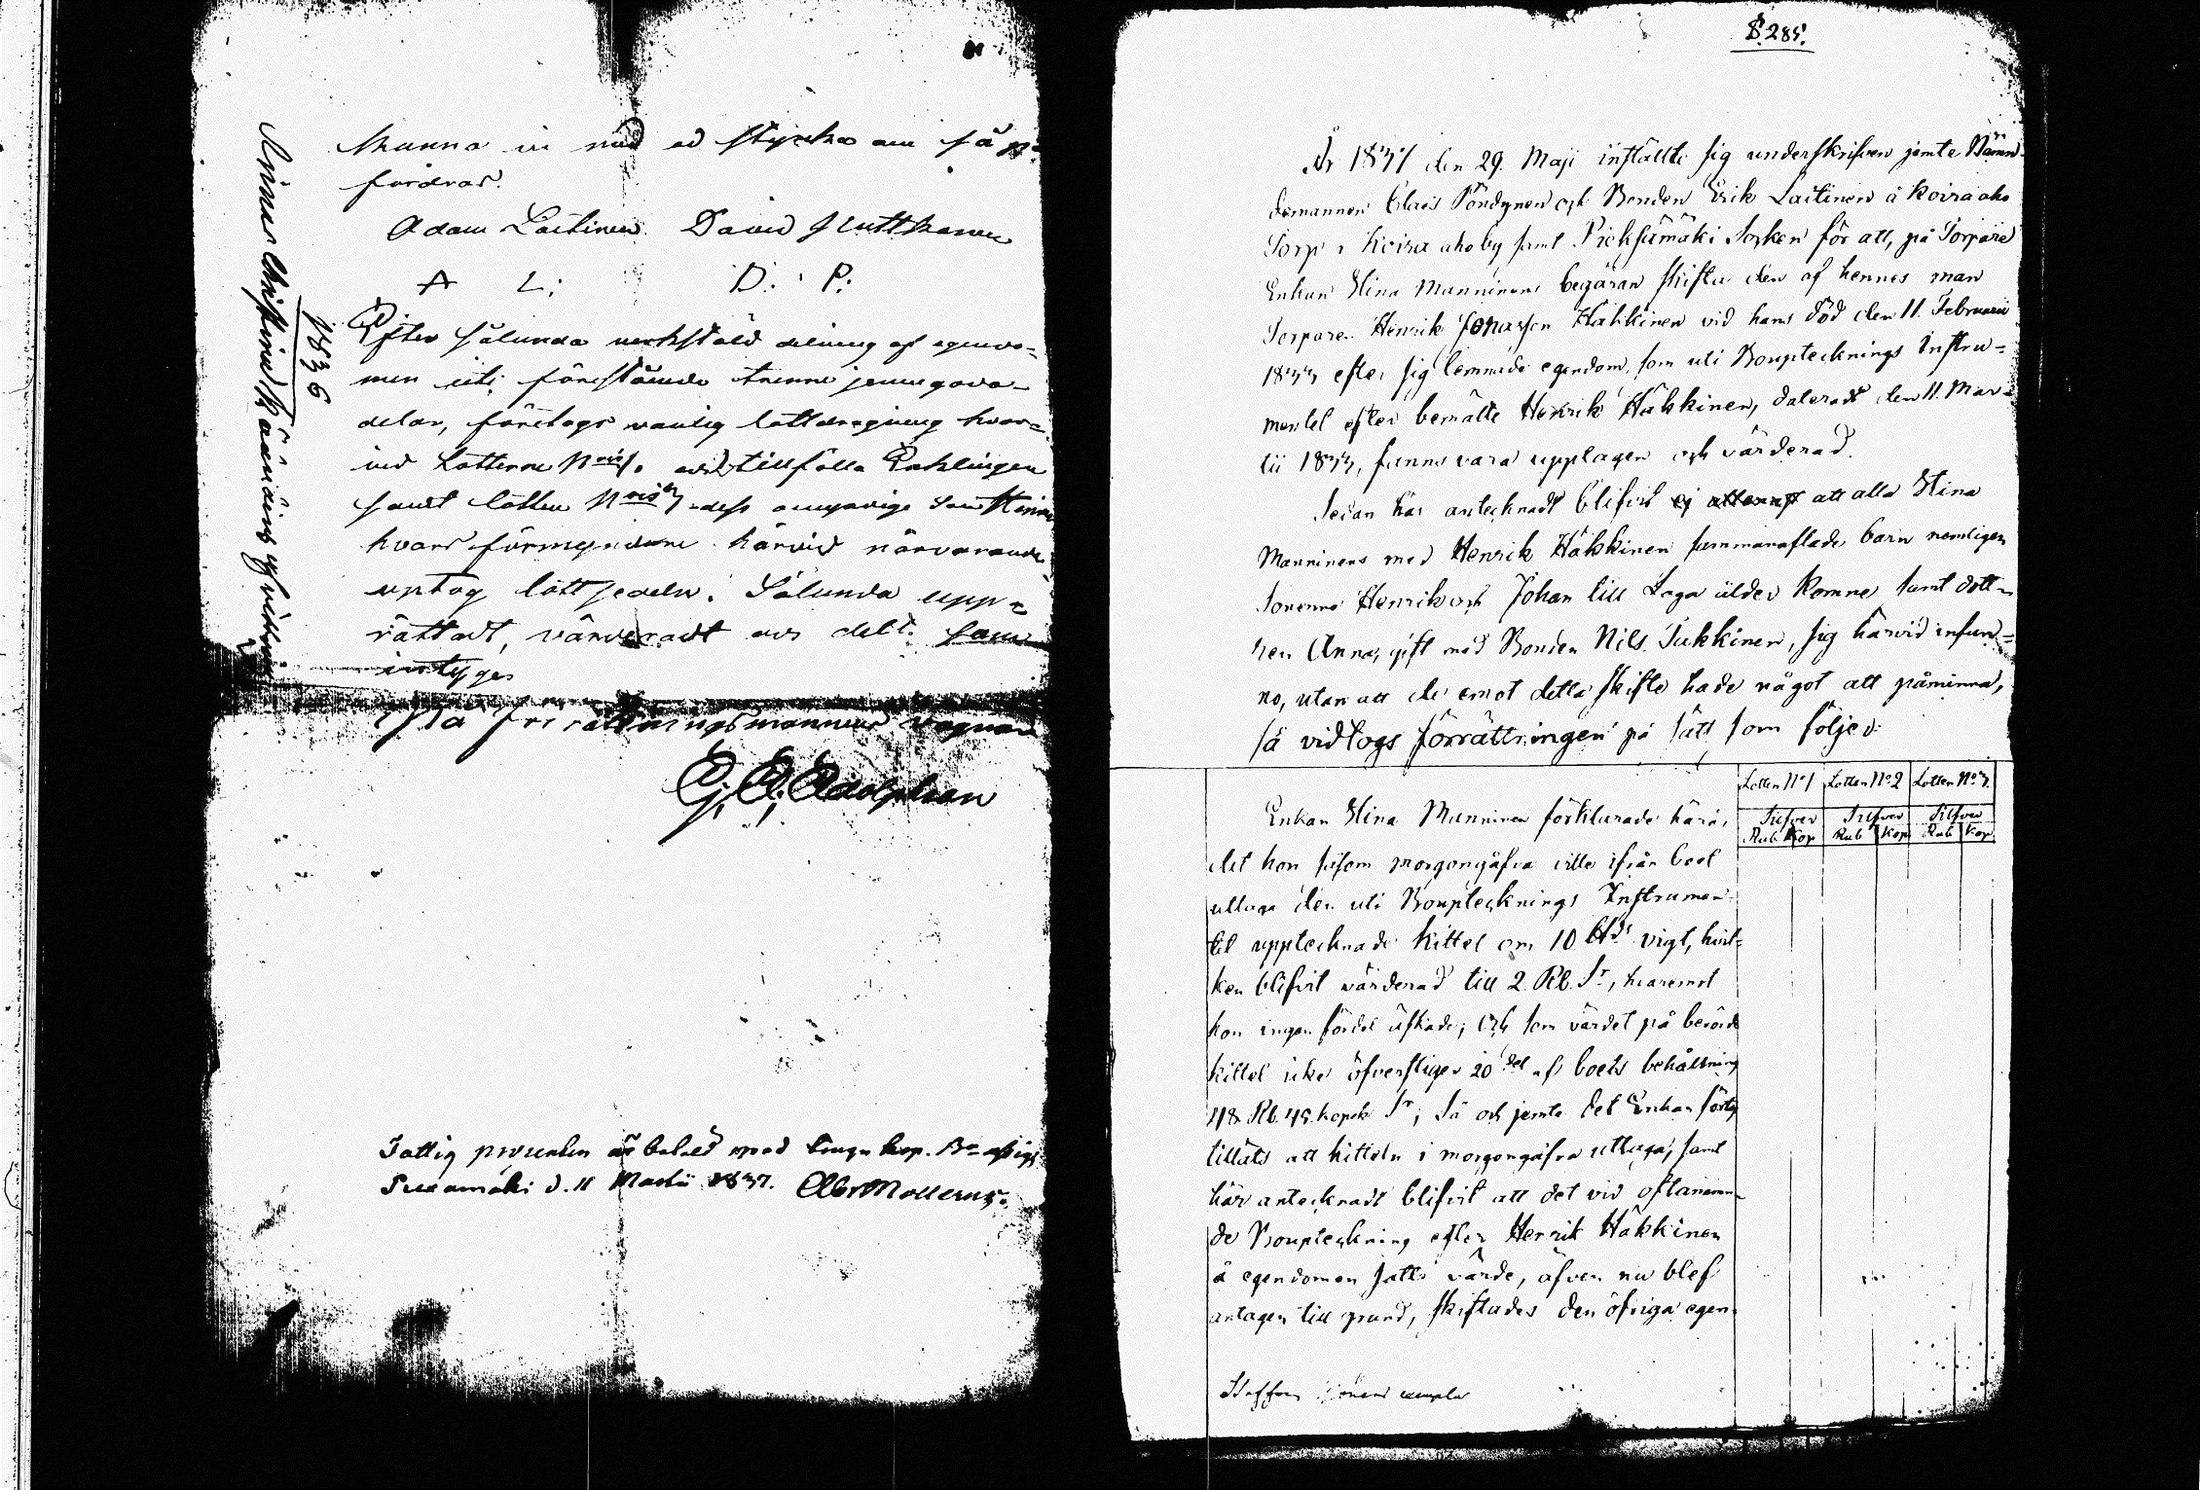 kunna vi med ed styrka om så på
fordras.
Adam Laitinen David Puttkonen
A L: D: P:
Efter sålunda verkstäld delning af egendo-
men uti förestående trenne jemngoda
delar, företogs vanlig lottdragning hvar-
vid Lotterne N:ris 1. och 2 tillfölle Enklingen
samt lotten N:ris 3 dess omyndige son
hvars förmyndare härvid närvarande
uptog lottsedeln. Sålunda upp-
rättadt, värderadt och delt. som
intyges
På förrättningsmannens vägnar
G. A. Adolphson
Fattig procenten är betald med kop. B:co assig:
d. 11 Martii 1837. Mollerus.
1836
S. 285.
År 1837 den 29. Maji inställte sig underskrifven jemte Nämn-
demannen Claës Pöndynen och Bonden Erik Laitinen å Koiraaho
Torp i Koiraaho by samt Pieksämäki Socken för att, på Torpare
Enkan Stina Manninens begäran skifta den af hennes man
Torparen Henrik Jonasson Häkkinen vid hans död den 11. Februarii
1833 efter sig lemnade egendom, som uti Boupptecknings Instru-
mentet efter bemälte Henrik Häkkinen, dateradt den 11. Mar-
tii 1833, funns vara upptagen och värderad.
Sedan här antecknadt blifvit att alla Stina
Manninens med Henrik Häkkinen sammanaflade barn nemligen
Sönerne Henrik och Johan till Laga ålder komne samt dott-
ren Anna, gift med Bonden Nils Tukkinen, sig härvid infun-
no, utan att de emot detta skifte hade något att påminna,
så vidtogs förrättningen på sätt som följer:
Lotten N:o 1 Lotten N:o 2 Lotten N:o 3.
Silfver Silfver Silfver
Rub Kop Rub Kop Rub Kop
Enkan Stina Manninen förklarade härå,
det hon såsom morgongåfva ville ifrån boet
uttaga den uti Boupptecknings Instrumen-
tet upptecknade kittel om 10 vigt, hvil-
ken blifvit värderad till 2 Rb. S:r, hvaremot
hon ingen fördel äskade; Och som värdet på berörde
kittel icke öfverstiger 20:del af boets behållning
48 Rb. 45. kopek S:r; Så och jemte det Enkan
tilläts att kitteln i morgongåfva uttaga, samt
här antecknadt blifvit att det vid oftanämn-
de Bouppteckning efter Henrik Häkkinen
å egendomen satte värde, äfven nu blef
antagen till grund, skiftades den öfriga egen-